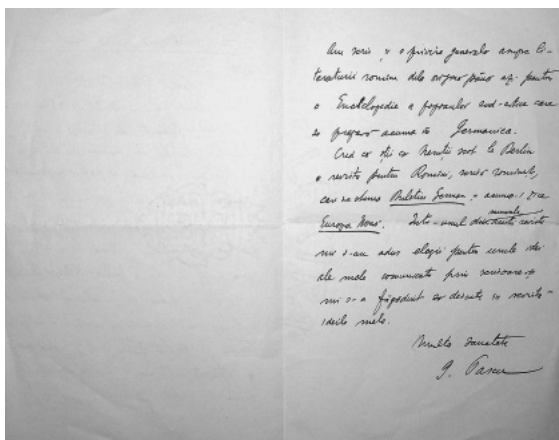 Am scris și o privire generală asupra li-
teraturii române dela origine până azi pentru
o Enciclopedie a popoarelor sud-estice care
se prepară acuma în Germania.
Cred că știi că Nemții scot la Berlin
o revistă pentru Români, scrisă românește,
care se chema Buletin German și acuma-i zice
Europa Nouă. Într-unul din numerele reviste
mi s-au adus elogii pentru unele idei
ale mele comunicate prin scrisoare și
mi s-a făgăduit că
ideile mele.
Multă sănătate
G. Pascu